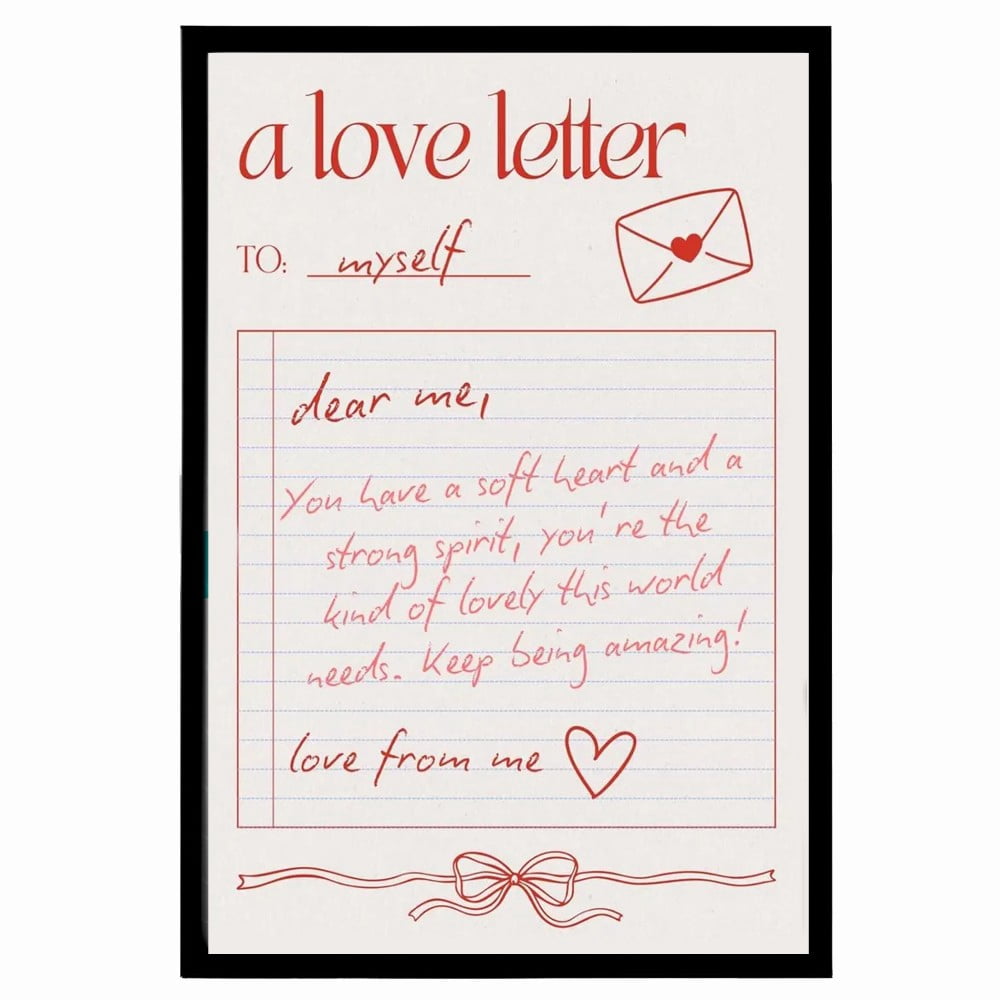 a love letter
TO: myself
dear me,
You have a soft heart and a
strong spirit, you're the
kind of lovely this world
needs. Keep being amazing!
love from me